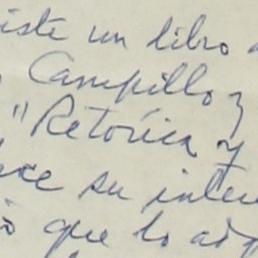 iste un libro
Campillo y
"Retórica y
ce su inte
que lo